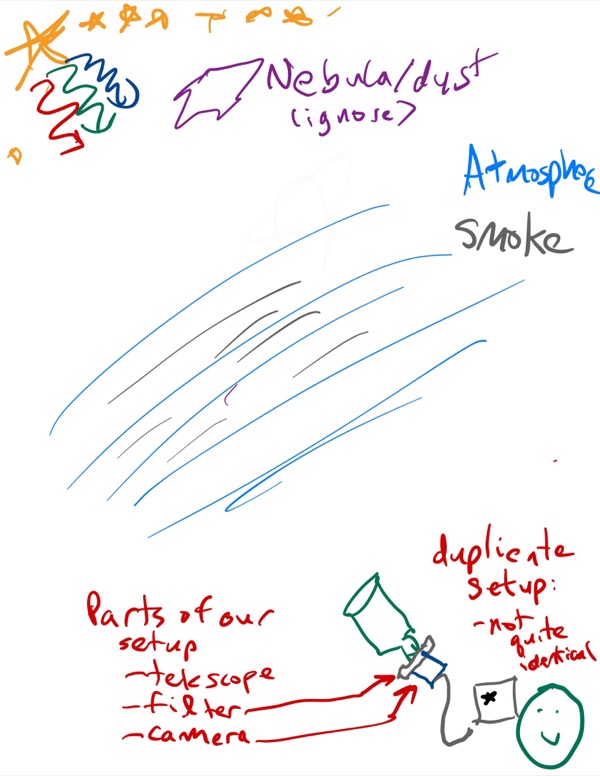 Nebula/dust
(ignose)
Atmosphee
smoke
duplicate
setup:
-not
quite
identical
Parts of our
setup
-telescope
-filter
-camera